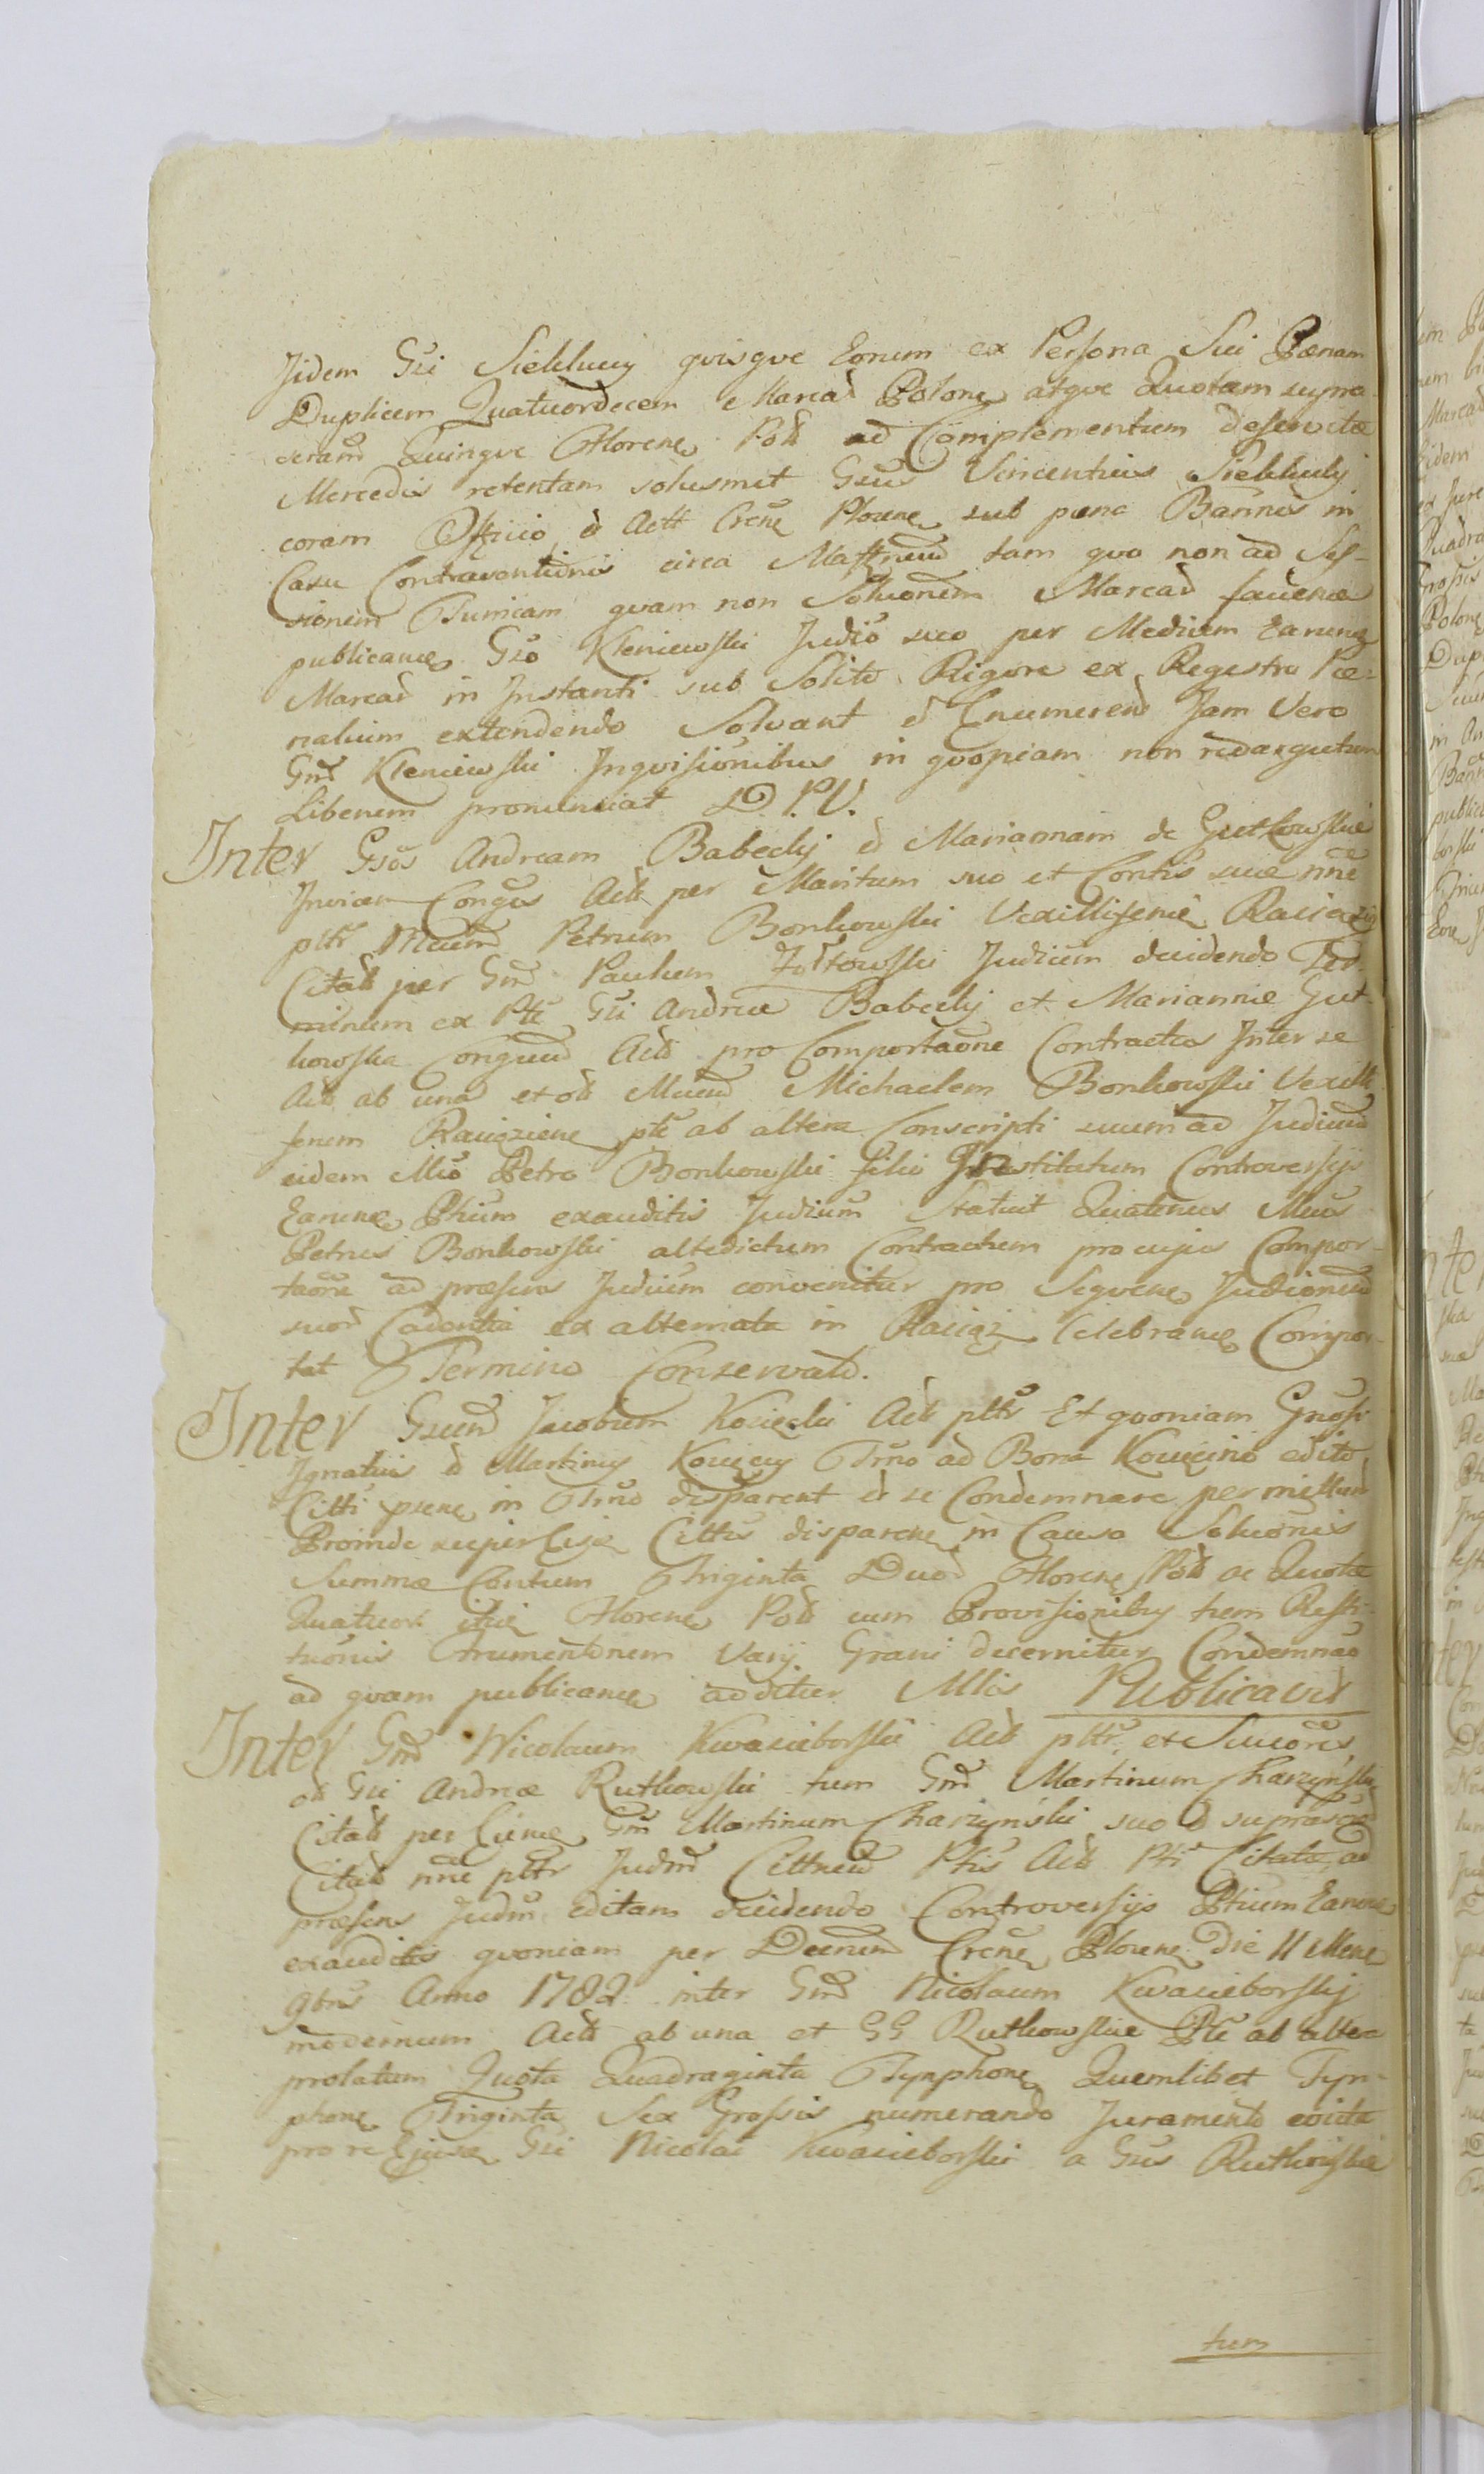 Jidem Gsi Sieklucy quisque Eorum ex Persona Sui Pœnam
Duplicem Quatuordecem Marcar Polon atque Quotam supra
Quinque Floren Poll ad Complementum deservitæ
Mercedis retentam solus met Gsus Vincentius Sieklucky
coram Officio et Actt Cren Plocen sub pœna Bannis in
Casu Contraventionis circa tam quo non ad Ses-
sionem Turricam quam non Solutionem Marcar
publican Gso Kleniewski Judio suo per Medium Earunq
Marcar in Instanti sub Solito Rigore ex Regestro Pœ-
nalium extendendo Solvant et Enumerent Jam Vero
Gnd Kleniewski Inquisitionibus in quopiam non redargutum
Liberum pronunciat D. P. V.
Inter Gsos Andream Babecky et Mariannam de Gutkowskie
Invicem Conges Act per Maritum suo et Contis suæ nne
pltr Mcum Petrum Bonkowski Vexilliferi Raciąz
Citat per Gnd Paulum Żołtowski Judicium decidendo Ter-
minum ex Pte Gsi Andreæ Babecky et Mariannæ Gut-
kowska Act pro Comportaone Contractus Inter se
Act ab una et ol Mcum Michaelem Bonkowski Vexilli
ferum Raciązien pte ab altera Conscripti suum ad Judicium
eidem Mco Petro Bonkowski filio Institutum Controversijs
Earunq Ptium exauditis Judium Statuit Quatenus Mcus
Petrus Bonkowski altedictum Contractum pro cujus Compor-
taone ad præsens Judicium convenitur pro Sequen Judiorum
suor Cadentia ex alternata in Raciąz Celebran Compor-
tet Termino Conservato.
Inter Gsum Jacobum Kosięcki Act pltr Et quoniam Gnosi
Ignatius et Martinus Kosięcy Trno ad Bona Kosięcino edito
Citti pren in Trno disparent et se Condemnare permittunt
Proinde super Eisd Cittis disparen in Causa Solutionis
Summæ Centum Triginta Duor Floren Poll ac Quotæ
Quatuor itid Floren Poll cum Provisionibus tum Resti-
tuonis Frumentorum Varij Grani decernitur Condemnao
ad quam publican additur Mlis Publicavit
Inter Gnd Nicolaum Kwasieborski Act pltr et Sucores
ol Gsi Andreæ Rutkowski tum Gnd Martinum Charzynski
Citat per Eund Gnd Martinum Charzynski suo et supra
Citat nne pltr Judm Cittneum Ptis Act Pti Citatæ ad
præsens Judm Editam decidendo Controversijs Ptium Earunq
exauditis quoniam per Decrum Crene Plocen Die 11 Mene
9bris Anno 1782 inter Gnd Nicolaum Kwasieborsky
modernum Act ab una et GG Rutkowskie Pte ab altera
prolatum Quota Quadraginta Tynphone Quemlibet Tyn-
phone Triginta Sex Grossis numerando Juramento evicta
pro re Ejusd Gsi Nicolai Kwasieborski a Gsis Rutkowskie
tum